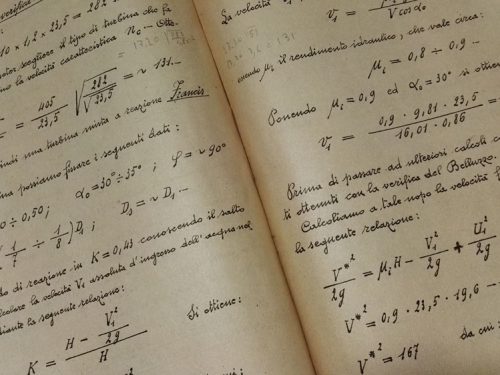 verifica
10 × 1,2 × 23,5 = 282
scegliere il tipo di turbina che fa
la velocità caratteristica n_c ... Otte.
= 405/23,5 √(282/√23,5) = ~ 131...
una turbina mista a reazione Francis.
possiamo fissare i seguenti dati:
0 ÷ 0,50; α₀ = 30° ÷ 35°; φ = ~ 90°
(1/7 ÷ 1/8) D₁; D₂ = ~ D₁ ...
di reazione in K = 0,43 conoscendo il salto
la velocità V₁ assoluta d'ingresso dell'acqua nel
la seguente relazione:
Si ottiene:
K = (H - V₁²/2g)/H
La velocità v₁ = /V cos α₀
μᵢ il rendimento idraulico, che vale circa:
μᵢ = 0,8 ÷ 0,9 ...
Ponendo μᵢ = 0,9 ed α₀ = 30° si
v₁ = (0,9 · 9,81 · 23,5)/(16,01 · 0,86) =
Prima di passare ad ulteriori calcoli
ti ottenuti con la verifica del Belluzzo.
Calcoliamo a tale uopo la velocità
la seguente relazione:
V*²/2g = μᵢH - V₁²/2g + U₁²/2g
V*² = 0,9 · 23,5 · 19,6 -
da cui:
V*² = 167